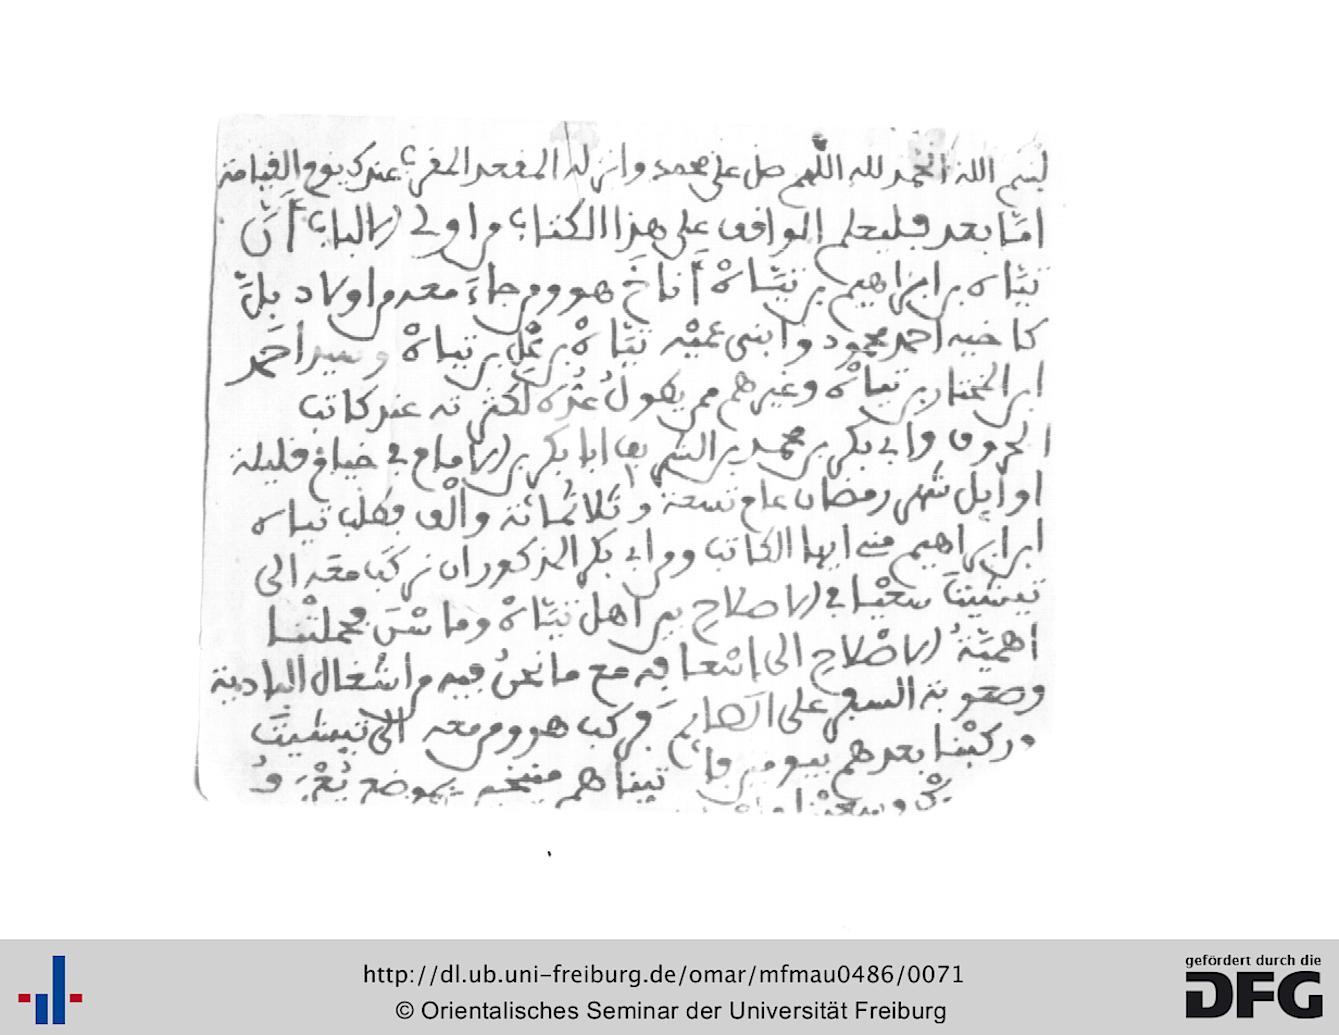 بسم الله الحمد لله اللهم صل على محمد وانزله المقعد المقرب عندك يوم القيامة
اما بعد فليعلم الواقف على هذا الكتاب من اولى الالباب أن
تياه بن ابراهيم بن تياه أناخ هو ومن جاء معه من اولاد
كاخيه احمد محمود وابني عميه تياه بن بن تياه وسيد احمد
ابن المختار بن تياه وغيرهم ممن يطول عده لكثرته عند كاتب
الحروف وابي بكر بن محمد بن ابا بكر بن الامام في خيام قليلة
اوايل شهر رمضان عام تسعة وثلاثمائة وألف فطلب تياه
ابن ابراهيم مني ايها الكاتب ومن ابي بكر المذكور ان نركب معه الى
تيشيت سعيا في الاصلاح بين اهل تياه وماسن فحملتنا
اهمية الاصلاح الى اسعافه مع ما نحن فيه من اشغال البادية
وصعوبة السفر على الصايم فركب هو ومن معه الى تيشيت
وركبنا بعدهم بيومين تياهم بموضع
http://dl.ub.uni-freiburg.de/omar/mfmau0486/0071
© Orientalisches Seminar der Universität Freiburg
gefördert durch die
DFG